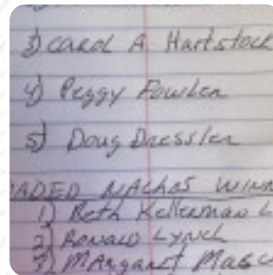 3) Carol A Hartstock
4) Peggy Fowler
5) Doug Dressler
NACHOS
1) Beth Kellerman L
2) Ronald Lynch
3) Margaret